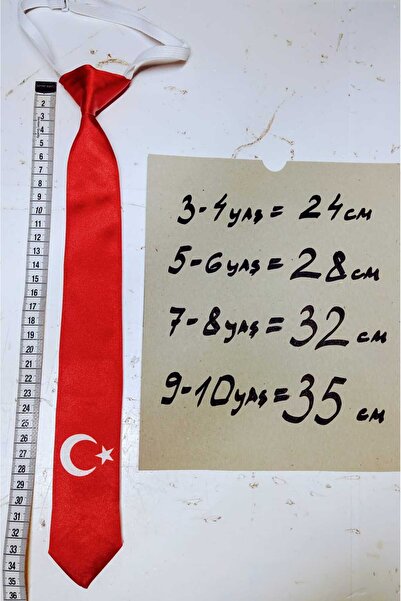 3-4 yaş = 24 cm
5-6 yaş = 28 cm
7-8 yaş = 32 cm
9-10 yaş = 35 cm
2
3
4
5
6
7
8
9
10
11
12
13
14
15
16
17
18
19
20
21
22
23
24
25
26
27
28
29
30
31
32
33
34
35
36